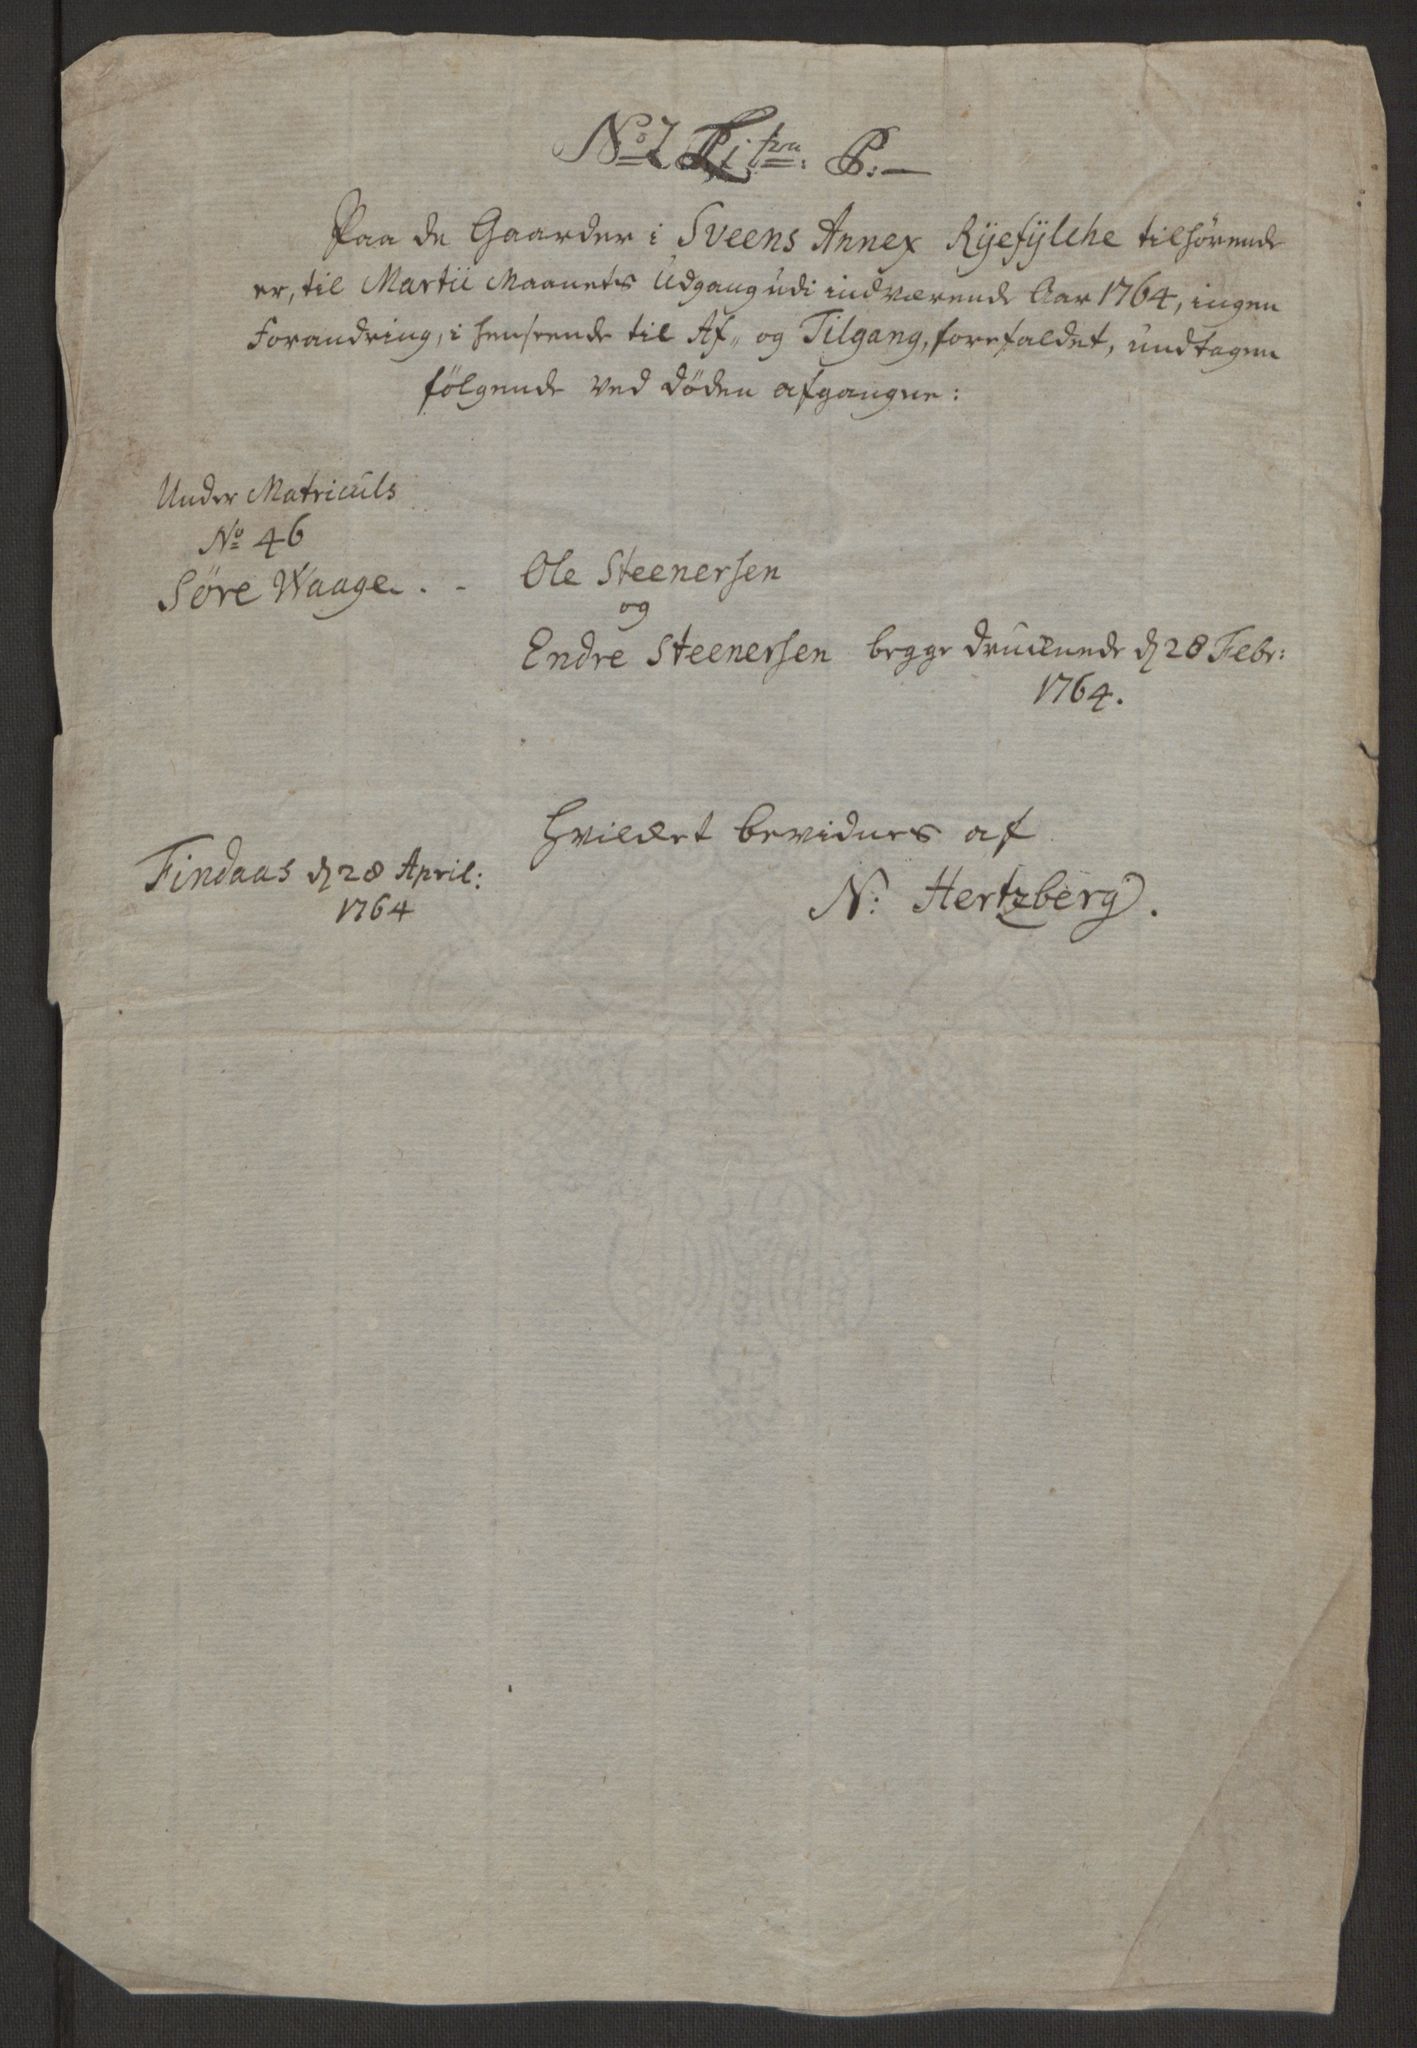 No 2 Litra: P:
Paa de Gaarder i Sveens Annex Ryefylche tilhørende
er, til Martii Maanets Udgang udi indværende Aar 1764, ingen
Forandring, i henseende til Af- og Tilgang, forefaldet, undtagen
følgende ved døden afgangne:
Under Matriculs
No 46
Søre Waage . - Ole Steenersen
og
Endre Steenersen begge druknede d 28 Febr:
1764.
Hvilket bevidnes af
Findaas d 28 April:
1764
N: Hertzberg.